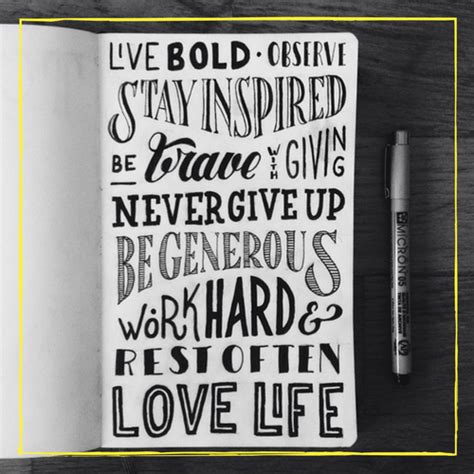 LIVE BOLD · OBSERVE
STAY INSPIRED
BE brave WITH GIVING
NEVER GIVE UP
BE GENEROUS
WÖRK HARD &
REST OFTEN
LOVE LIFE
MICRON 05